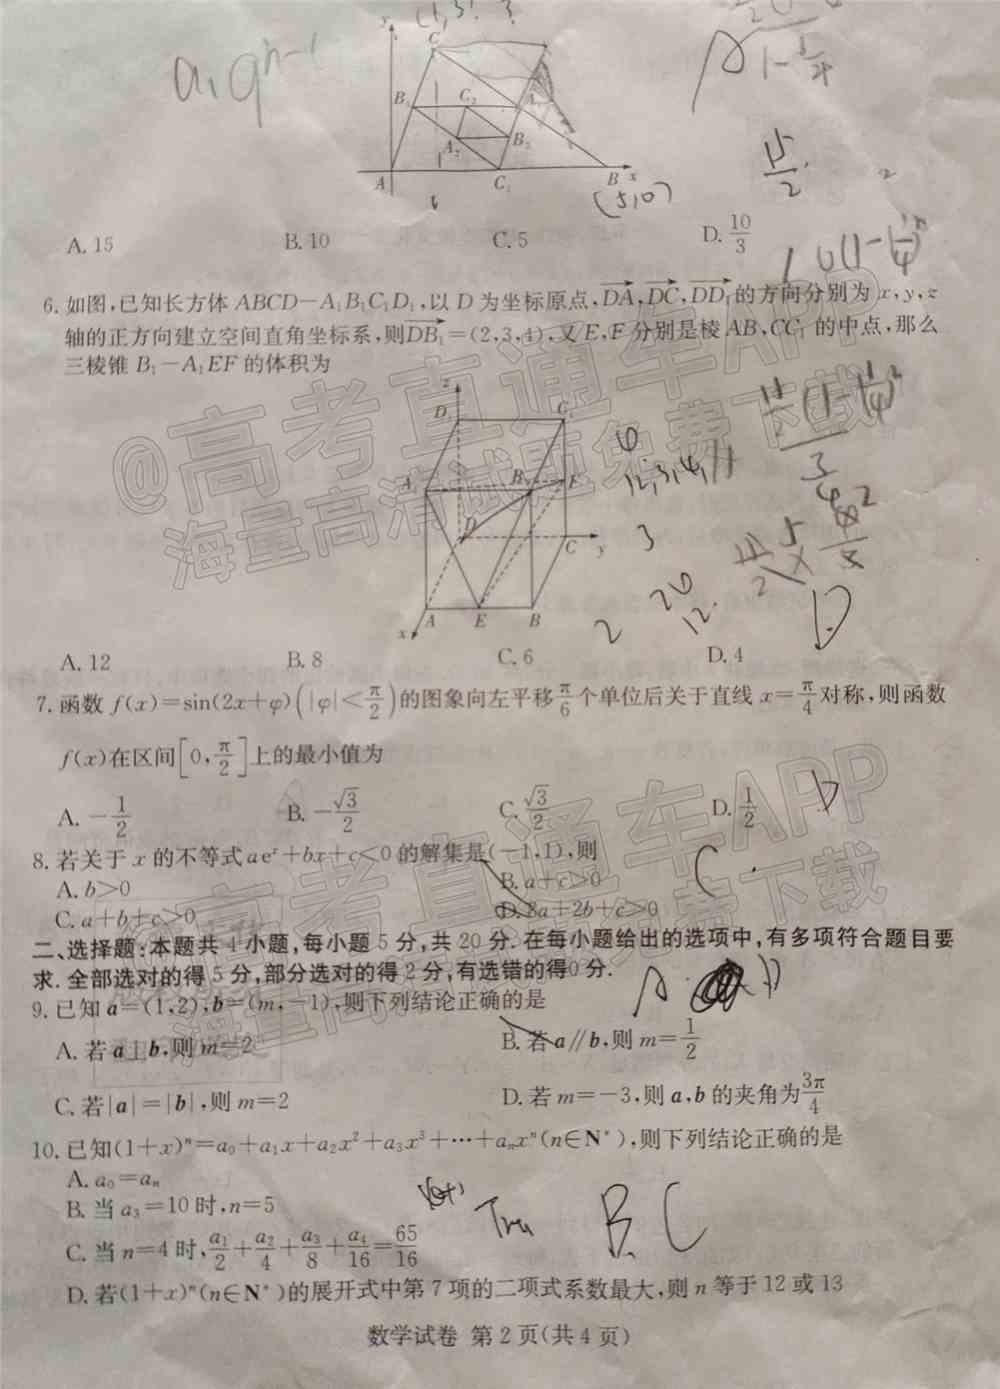 (1,3)
a₁qⁿ⁻¹
y
C
B₁ C₂ A₁
A₂ B₂
A C₁ B x
(5,0)
A. 15 B. 10 C. 5 D. 10/3
6. 如图,已知长方体 ABCD－A₁B₁C₁D₁,以 D 为坐标原点,DA,DC,DD₁的方向分别为 x,y,z
轴的正方向建立空间直角坐标系,则DB₁=(2,3,4),又 E,F 分别是棱 AB,CC₁ 的中点,那么
三棱锥 B₁－A₁EF 的体积为
z
D₁ C₁
A₁ B₁ F
D C y
x A E B
A. 12 B. 8 C. 6 D. 4
D
7. 函数 f(x)=sin(2x+φ)(|φ|<π/2)的图象向左平移π/6个单位后关于直线 x=π/4对称,则函数
f(x)在区间[0,π/2]上的最小值为
A. －1/2 B. －√3/2 C. √3/2 D. 1/2
8. 若关于 x 的不等式aeˣ+bx+c<0的解集是(－1,1),则
A. b>0 B. a+c>0
C. a+b+c>0 D. 8a+2b+c>0
C
二、选择题:本题共 4 小题,每小题 5 分,共 20 分. 在每小题给出的选项中,有多项符合题目要
求. 全部选对的得 5 分,部分选对的得 2 分,有选错的得0 分.
9. 已知 a=(1,2),b=(m,－1),则下列结论正确的是
A
A. 若 a⊥b,则 m=2 B. 若 a∥b,则 m=1/2
C. 若|a|=|b|,则 m=2 D. 若 m=－3,则 a,b 的夹角为3π/4
10. 已知(1+x)ⁿ=a₀+a₁x+a₂x²+a₃x³+⋯+aₙxⁿ(n∈N*),则下列结论正确的是
A. a₀=aₙ
B. 当 a₃=10 时,n=5
B. C
C. 当 n=4 时,a₁/2+a₂/4+a₃/8+a₄/16=65/16
D. 若(1+x)ⁿ(n∈N*)的展开式中第 7 项的二项式系数最大,则 n 等于 12 或 13
数学试卷 第 2 页(共 4 页)
@高考直通车APP
海量高清试题免费下载
@高考直通车APP
海量高清试题免费下载